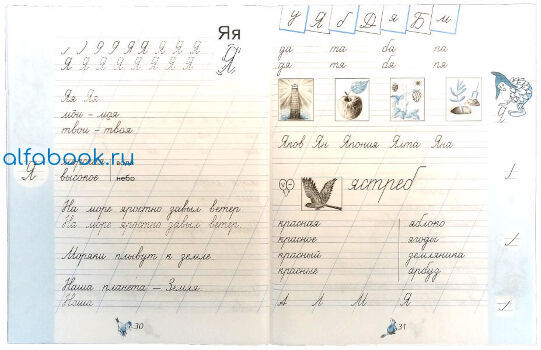 Яя
Я Я Я Я Я Я Я Я Я
Яя Яя
мои – моя
твои – твоя
alfabook.ru
морская
высокое небо
Я
На море яростно завыл ветер.
На море яростно завыл ветер.
Моряки плывут к земле.
Наша планета – Земля.
Наша
30
У Я б Д я Б м
да та ба па
дя тя бя пя
Яков Ян Япония Ялта Яна
ястреб
красная яблоко
красное ягоды
красный земляника
красные арбуз
А Л М Я
31